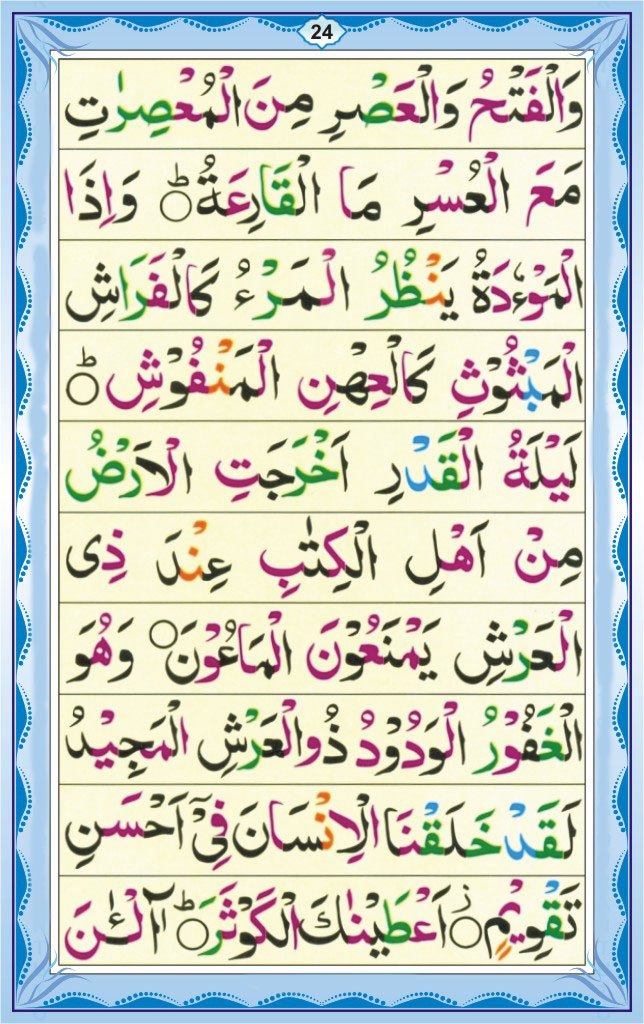 24
وَالْفَتْحُ وَالْعَصْرِ مِنَ الْمُعْصِرٰتِ
مَعَ الْعُسْرِ مَا الْقَارِعَةُ ؕ○ وَاِذَا
الْمَوْءٗدَةُ يَنْظُرُ الْمَرْءُ كَالْفَرَاشِ
الْمَبْثُوْثِ كَالْعِهْنِ الْمَنْفُوْشِ ؕ○
لَيْلَةُ الْقَدْرِ اَخْرَجَتِ الْاَرْضُ
مِنْ اَهْلِ الْكِتٰبِ عِنْدَ ذِی
الْعَرْشِ يَمْنَعُوْنَ الْمَاعُوْنَ ○ وَهُوَ
الْغَفُوْرُ الْوَدُوْدُ ذُوالْعَرْشِ الْمَجِيْدُ
لَقَدْ خَلَقْنَا الْاِنْسَانَ فِیْۤ اَحْسَنِ
تَقْوِيْمٍ ؗ○ اَعْطَيْنٰكَ الْكَوْثَرَ ؕ○ آلْـٰٔنَ